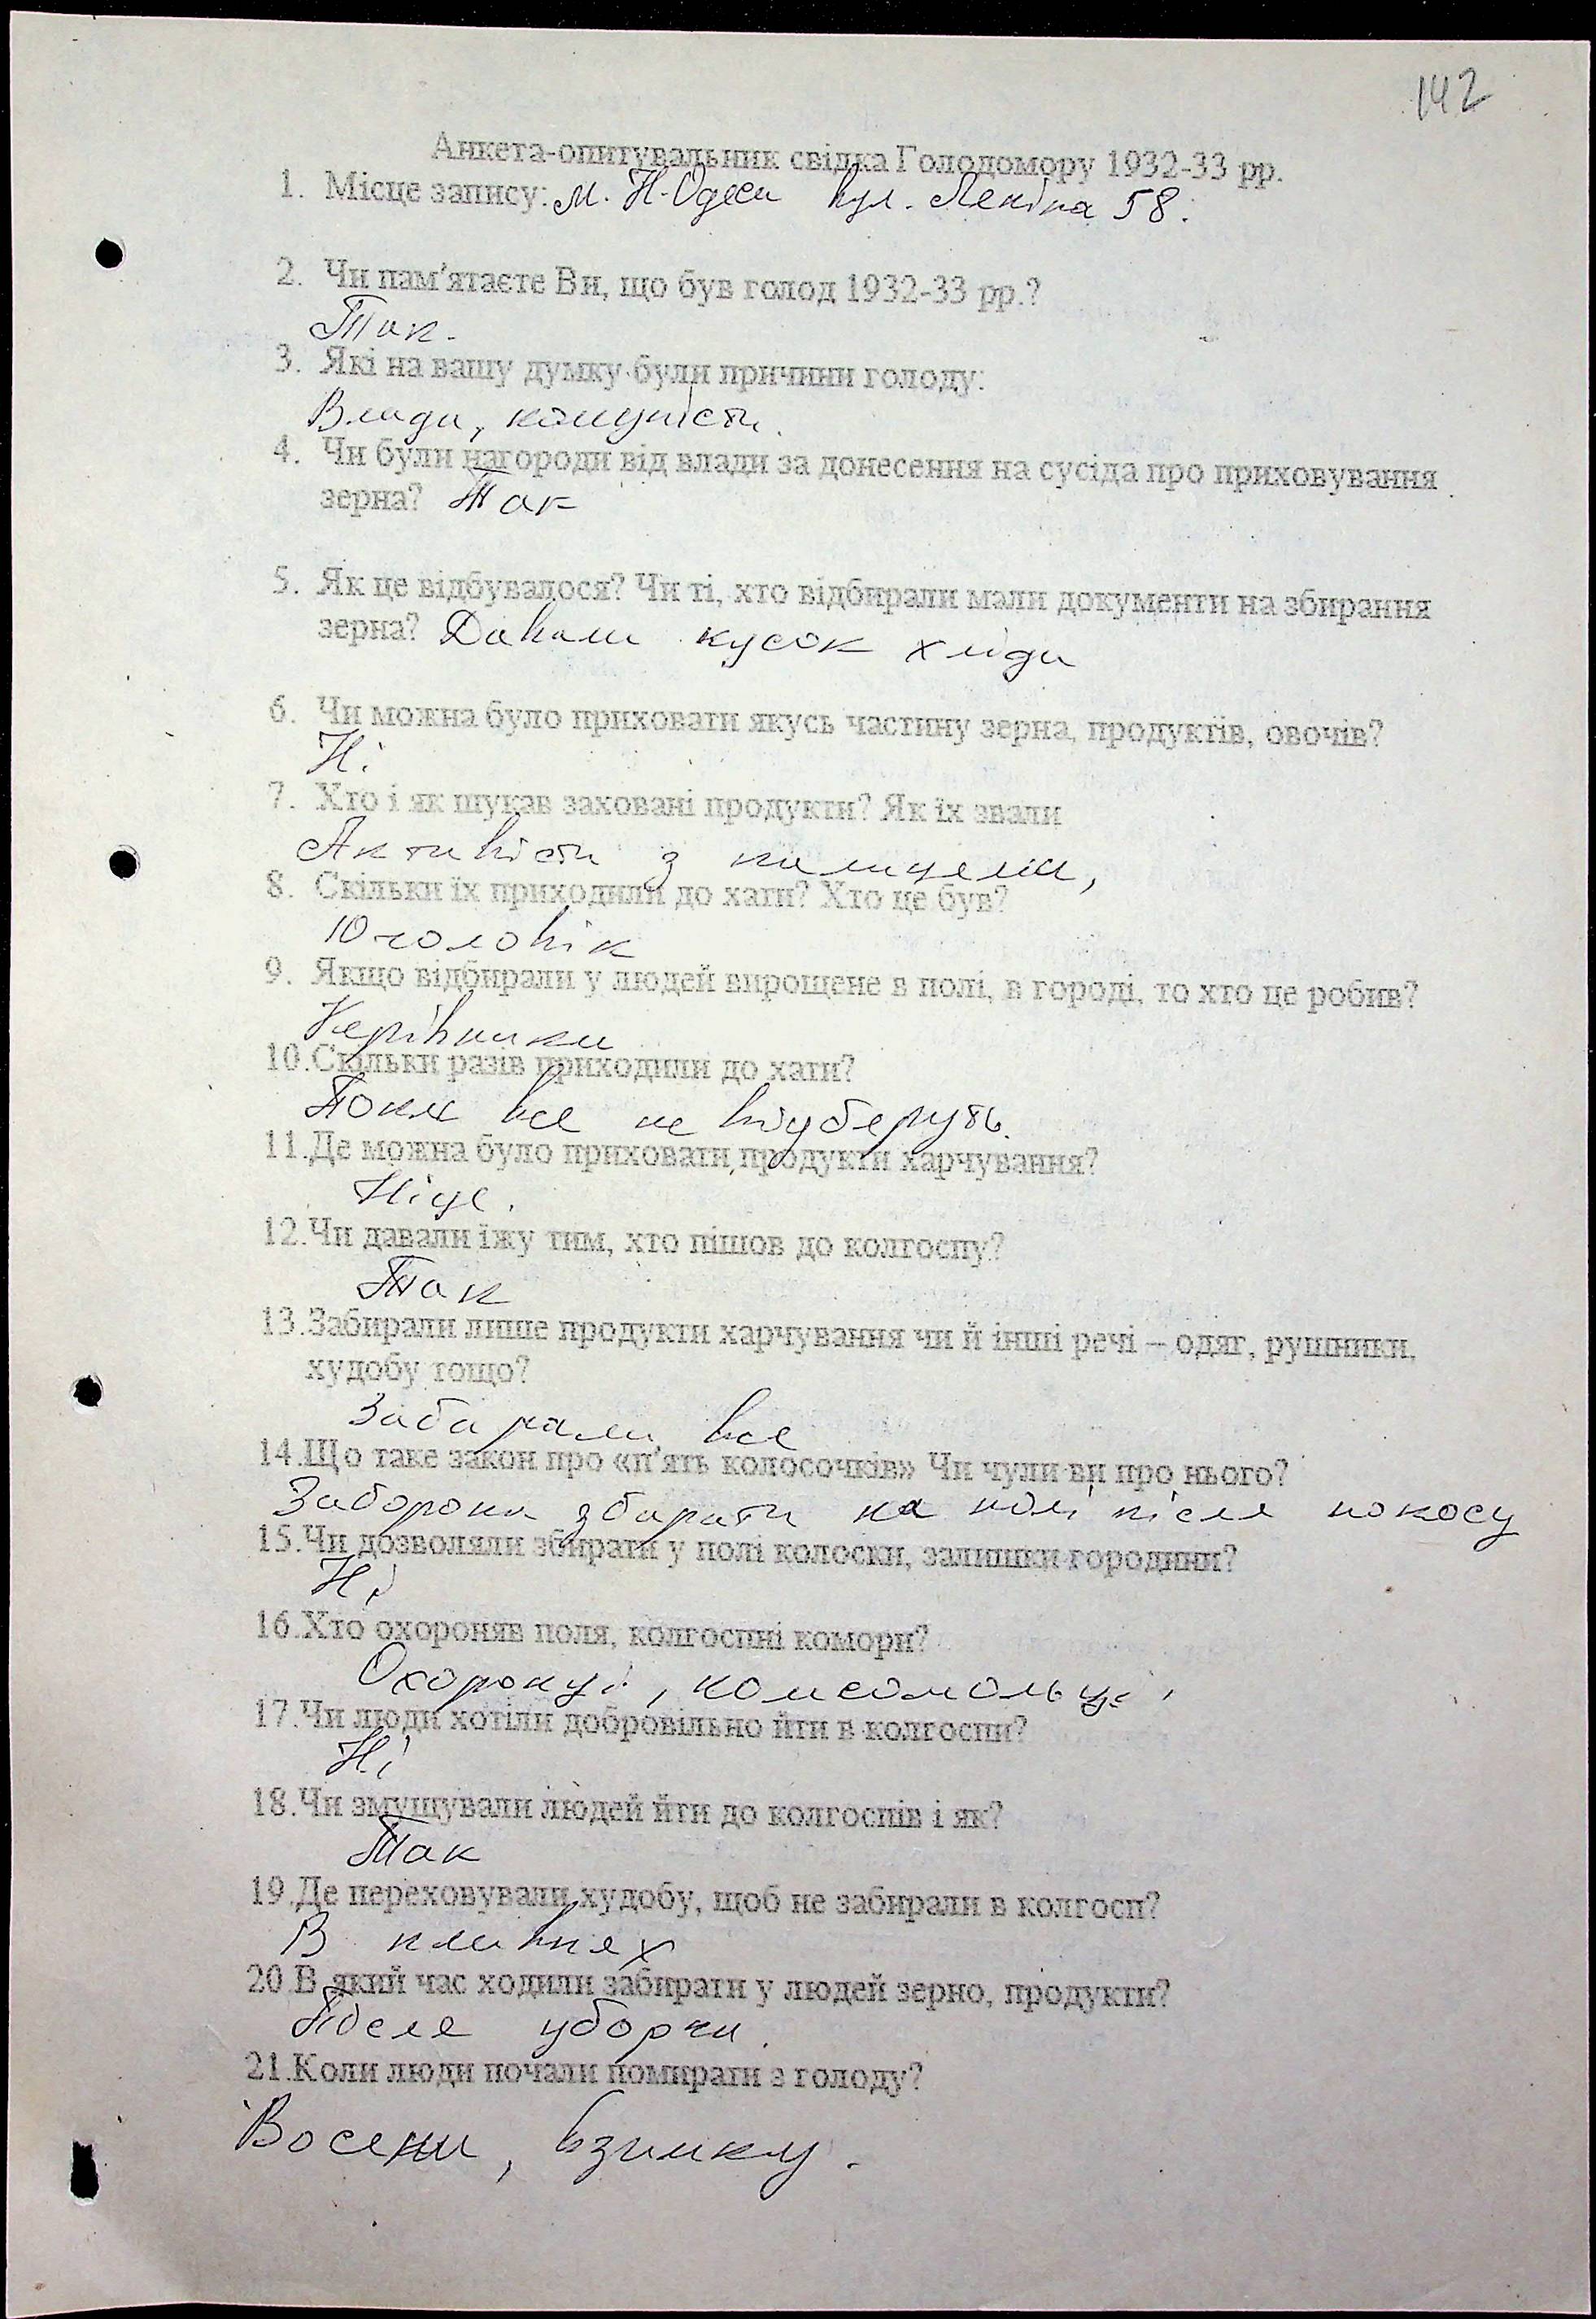 142
Анкета-опитувальник свідка Голодомору 1932-33 рр.
1. Місце запису: м. Н-Одеса вул. Леніна 58.
2. Чи пам'ятаєте Ви, що був голод 1932-33 рр.?
Так.
3. Які на вашу думку були причини голоду:
Влада, комуністи.
4. Чи були нагороди від влади за донесення на сусіда про приховування
зерна? Так
5. Як це відбувалося? Чи ті, хто відбирали мали документи на збирання
зерна? Давали кусок хліба
6. Чи можна було приховати якусь частину зерна, продуктів, овочів?
Ні
7. Хто і як шукав заховані продукти? Як їх звали
Активісти з
8. Скільки їх приходили до хати? Хто це був?
10 чоловік
9. Якщо відбирали у людей вирощене в полі, в городі, то хто це робив?
Керівники
10.Скільки разів приходили до хати?
Поки все не відберуть.
11.Де можна було приховати продукти харчування?
Ніде.
12.Чи давали їжу тим, хто пішов до колгоспу?
Так
13.Забирали лише продукти харчування чи й інші речі – одяг, рушники,
худобу тощо?
Забирали все
14.Що таке закон про «п'ять колосочків» Чи чули ви про нього?
Заборона збирати на полі після покосу
15.Чи дозволяли збирати у полі колоски, залишки городини?
Ні
16.Хто охороняв поля, колгоспні комори?
Охоронці, комсомольці,
17.Чи люди хотіли добровільно йти в колгоспи?
Ні
18.Чи змушували людей йти до колгоспів і як?
Так
19.Де переховували худобу, щоб не забирали в колгосп?
В
20.В який час ходили забирати у людей зерно, продукти?
Після уборки.
21.Коли люди почали помирати з голоду?
Восени, взимку.